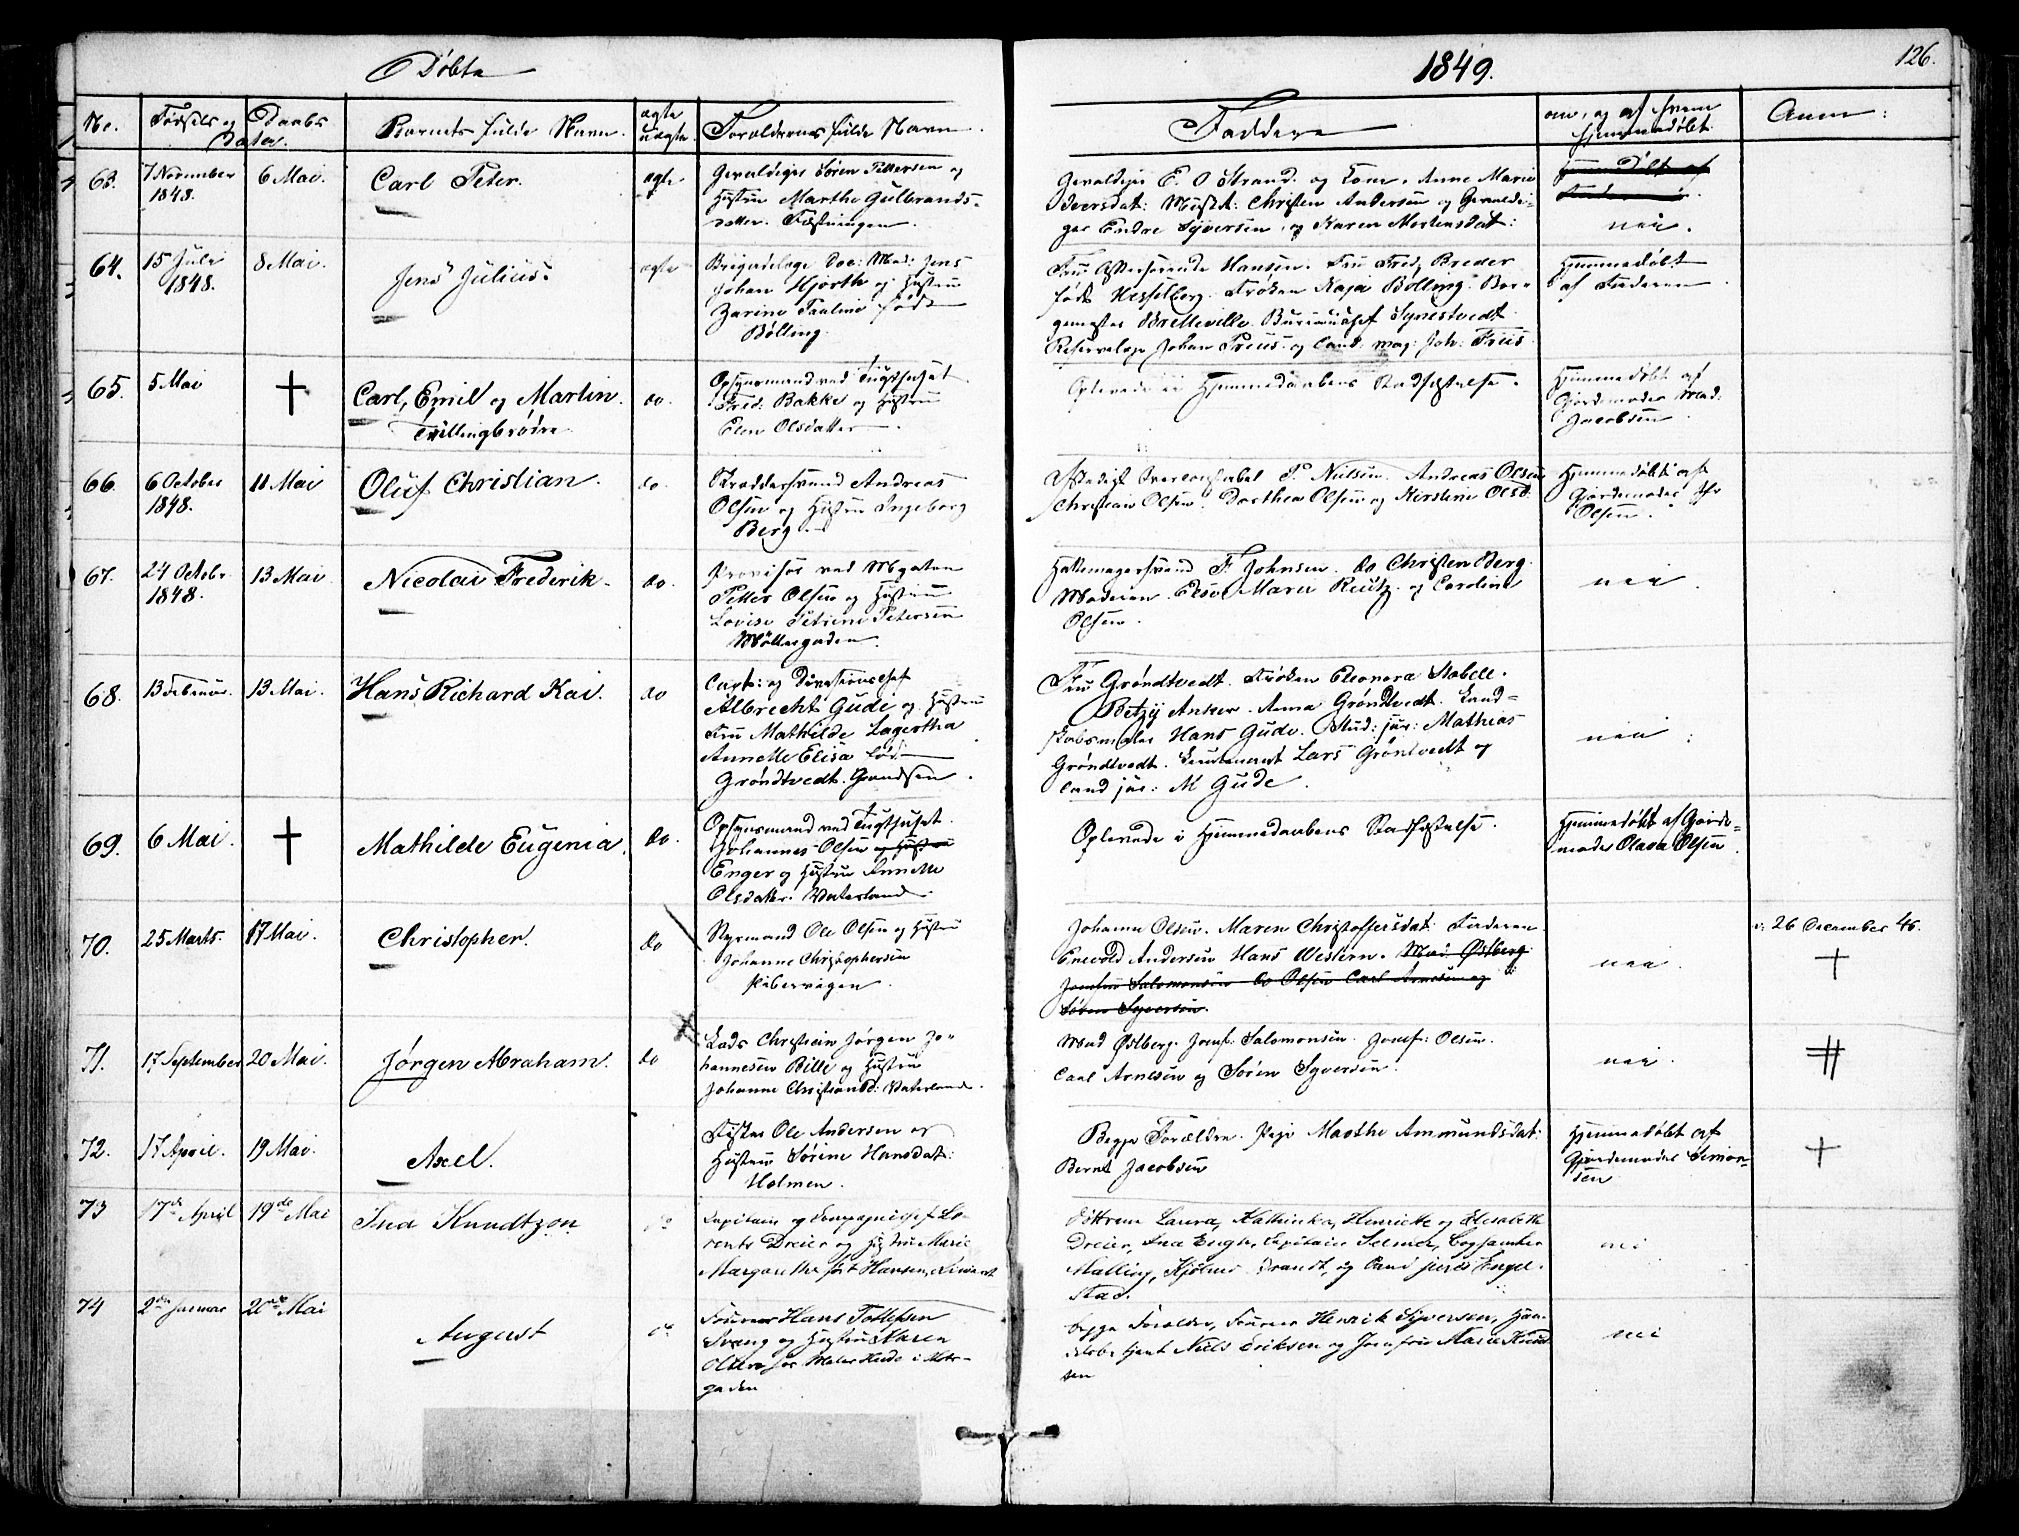 Døbte
1849.
126.
No.
Fødsels og Daabs
Dater.
Barnets fulde Navn.
ægte
uægte
Forældrenes fulde Navn.
Faddere
om, og af hvem
hjemmedøbt
Anm:
63.
7 November
1848.
6 Mai.
Carl Peter.
ægte
Gevaldiger Søren Pettersen og
Hustru Marthe Gulbrands-
datter. Fæstningen.
Gevaldiger E. O Strand og Kone, Anne Marie
Iversdat: Christen Andersen og Gevaldi-
ger Endre Syversen og Karen Mortensdat:
nei.
64.
15 Juli
1848.
8 Mai.
Jens Julius.
ægte
Brigadelæge Doc: Med: Jens
Johan Hjorth og Hustru
Zarine Pauline født
Bølling.
Fru Hansen. Fru Fred. Breder
født Hesselberg. Frøken Kaja Bølling. Bor-
gemester Bretteville. Synestvedt
Reservelæge Johan Preus og Cand: mag: Joh: Friis
Hjemmedøbt
af Faderen
65.
5 Mai
†
Carl, Emil og Martin.
Tvillingbrødre.
do.
Opsynsmand ved Tugthuset
Fred: Bakke og Hustru
Elen Olsdatter
Oplevede ei Hjemmedaabens Stadfæstelse.
Hjemmedøbt af
Gjordemoder Mad:
Jacobsen
66.
6 October
1848.
11 Mai
Oluf Christian.
do.
Skreddersvend Andreas
Olsen og Hustru Ingeborg
Berg
P. Nielsen. Andreas Olsen
Christian Olsen. Dorthea Olsen og Kirstine Olsd.
Hjemmedøbt af
Gjordemoder
Olsen.
67.
24 Octobr
1848.
13 Mai
Nicolai Frederik.
do.
Provisor ved
Petter Olsen og Hustru
Lovise Petrine Petersen
Møllergaden.
Hattemagersvend F. Johnsen. do Christen Berg.
Moderen. Marie Reutz og Caroline
Olsen.
nei
68.
13 Februar.
13 Mai.
Hans Richard Kai.
do
Capt: og Divisionschef
Albrecht Gude og Hustru
Fru Mathilde Lagertha
Annette Elisa født
Grøndtvedt. Grændsen.
Fru Grøndtvedt. Frøken Eleonora Stabell.
Betzy Anker. Anna Grøndtvedt. Land-
skabsmaler Hans Gude. Stud: jur: Mathias
Grøndtvedt. Lars Grøndtvedt og
Cand jur: M Gude.
nei
69.
6 Mai.
†
Mathilde Eugenia.
do.
Opsynsmand ved Tugthuset.
Johannes Olsen og Hustru
Enger og Hustru Annette
Olsdatter. Vaterland
Oplevede ei Hjemmedaabens Stadfæstelse.
Hjemmedøbt af Gjorde-
moder Olava Olsen
70.
25 Marts.
17 Mai.
Christopher.
do
Styrmand Ole Olsen og Hustru
Johanne Christophersen
Pibervigen.
Johanne Olsen. Maren Christoffersdat: Faderen.
Enevold Andersen Hans Western. Mad: Østberg
Jomfru Salomonsen do Olsen Carl Arnesen og
Søren Syversen.
nei.
26 December 46.
†
71.
17 September
20 Mai
Jørgen Abraham.
do
Lods Christian Jørgen Jo-
hannesen Bille og Hustru
Johanne Christiansd: Vaterland.
Mad Østberg. Jomf: Salomonsen. Jomf: Olsen.
Carl Arnesen og Søren Syversen.
nei.
72.
17 April.
19 Mai.
Axel.
Fisker Ole Andersen og
Hustru Sørine Hansdat:
Holmen.
Begge Forældre. Pige Marthe Ammundsdat:
Bernt Jacobsen
Hjemmedøbt af
Gjordemoder Simon-
sen
†
73
17de April
19de Mai
Ina Knudtzon
do
Capitain og Compagnichef Lo-
rentz Dreier og Hustru Marie
Margarethe født Hansen,
Laura, Kathinka, Henriette og Elisabeth
Dreier, Ina Engh, Capitain Selmer,
Malling, Kjøbmd Brandt, og Cand juris Engel-
stad.
nei
74
2den Januar
20de Mai
August
do
Hans Tollefsen
Svang og Hustru Karen
Olsen hos Maler Hude i
gaden
begge Forældre, Henrik Syversen, Han-
Niels Eriksen og Jomfru Marie Knud
sen
nei